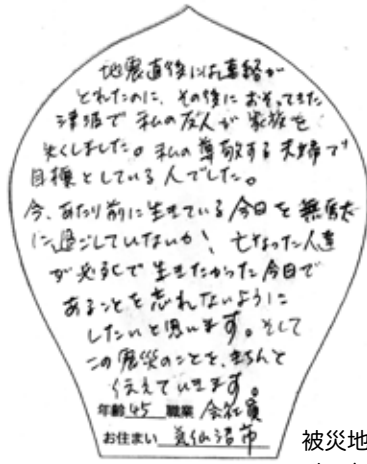 地震直後には連絡が
とれたのに、その後におそってきた
津波で私の友人が家族を
失くしました。私の尊敬する夫婦で
目標としている人でした。
今、あたり前に生きている今日を無駄
に過ごしていないか! 亡なった人達
が必死で生きたかった今日で
あることを忘れないように
したいと思います。そして
この震災のことを、きちんと
伝えていきます。
年齢 45 職業 会社員
お住まい 気仙沼市
被災地